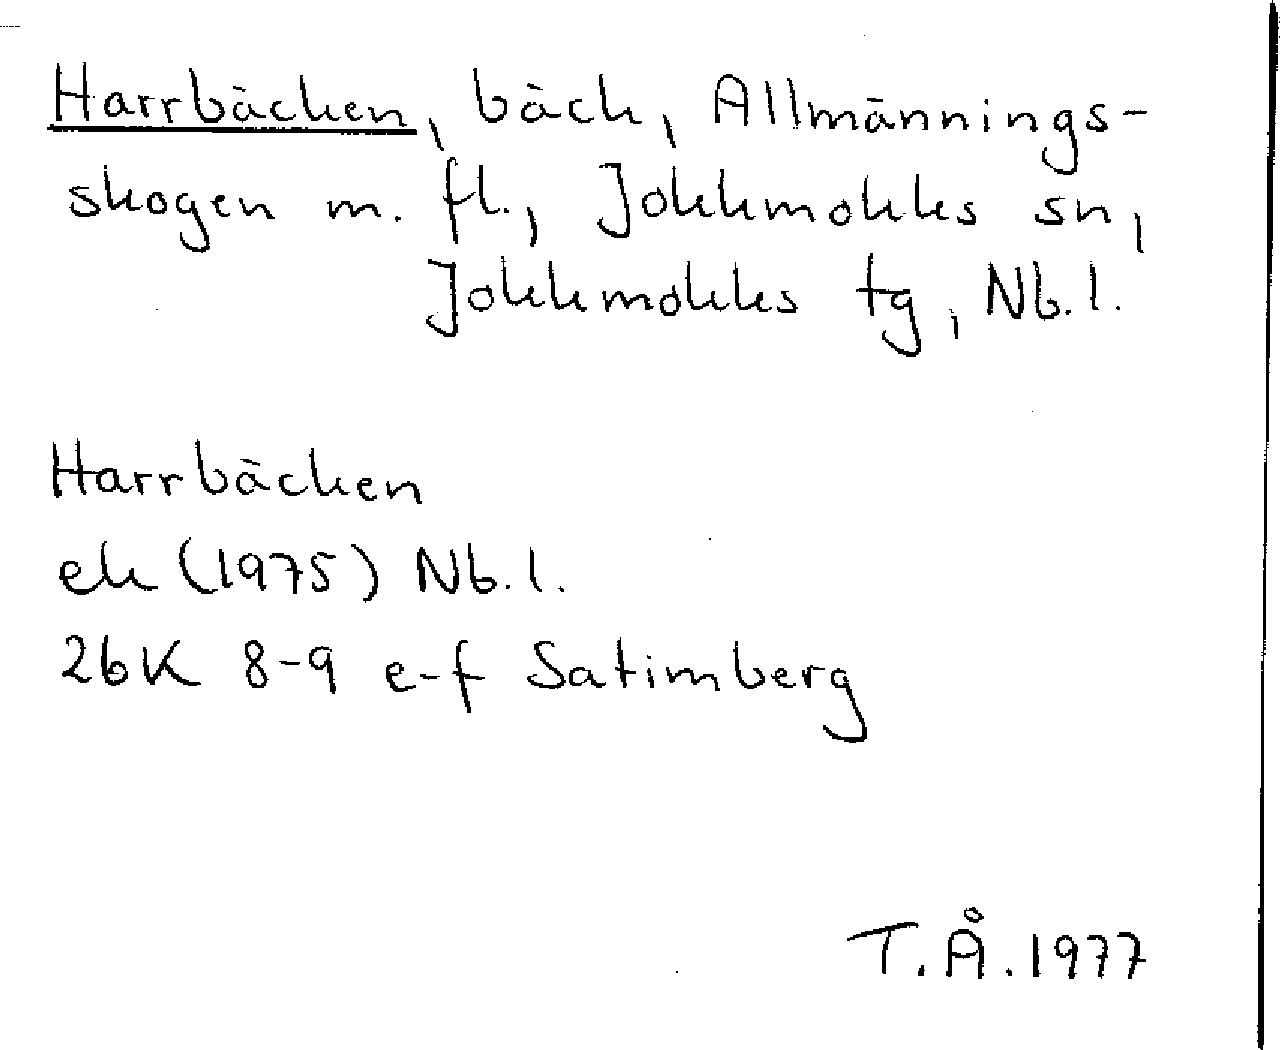 Harrbäcken, bäck, Allmännings-
skogen m. fl., Jokkmokks sn,
Jokkmokks tg, Nb.l.
Harrbäcken
ek (1975) Nb.l.
26K 8-9 e-f Satimberg
T.Å. 1977